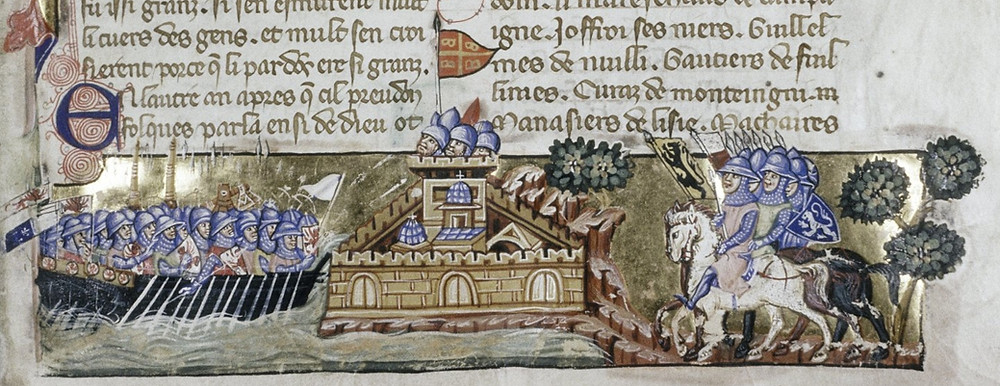 fu issi granz. si sen esmurent mult
li cuers des gens. et mult sen croi
sierent porce q̃ li pardõs ere si granz.
En lautre an apres q̃ cil preudon
folques parla ensi de dieu ot
doin. li mareschaus de campa
igne. Joffroi ses niers. Guillel
mes de nuilli. Gautiers de fuil
limes. Curaz de monteingni. m
Manasiers de lisle. Machaires